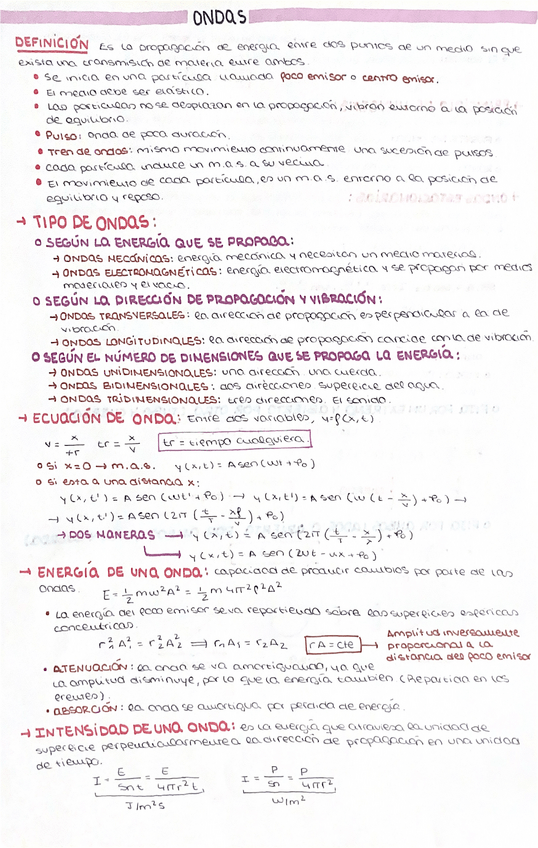 ONDAS
DEFINICIÓN Es la propagación de energía entre dos puntos de un medio sin que
exista una transmisión de materia entre ambos.
• Se inicia en una partícula llamada foco emisor o centro emisor.
• El medio debe ser elástico.
• Las partículas no se desplazan en la propagación, vibran entorno a la posición
de equilibrio.
• Pulso: onda de poca duración.
• Tren de ondas: mismo movimiento continuamente una sucesión de pulsos
• Cada partícula induce un m.a.s. a su vecina.
• El movimiento de cada partícula, es un m.a.s. entorno a la posición de
equilibrio y reposo.
→ TIPO DE ONDAS:
o SEGÚN LA ENERGÍA QUE SE PROPAGA:
→ ONDAS MECÁNICAS: energía mecánica y necesitan un medio material.
→ ONDAS ELECTROMAGNÉTICAS: energía electromagnética y se propagan por medios
materiales y el vacío.
o SEGÚN LA DIRECCIÓN DE PROPAGACIÓN Y VIBRACIÓN:
→ ONDAS TRANSVERSALES: la dirección de propagación es perpendicular a la de
vibración.
→ ONDAS LONGITUDINALES: la dirección de propagación coincide con la de vibración
o SEGÚN EL NÚMERO DE DIMENSIONES QUE SE PROPAGA LA ENERGÍA:
→ ONDAS UNIDIMENSIONALES: una dirección. una cuerda.
→ ONDAS BIDIMENSIONALES: dos direcciones superficie del agua.
→ ONDAS TRIDIMENSIONALES: tres direcciones. El sonido.
→ ECUACIÓN DE ONDA: Entre dos variables, y=f(x,t)
v = x/tr tr = x/v tr = tiempo cualquiera
o Si x=0 → m.a.s. y(x,t) = A sen(wt+φ₀)
o Si esta a una distancia x:
y(x,t') = A sen(wt'+φ₀) → y(x,t') = A sen(w(t - x/v)+φ₀) →
→ DOS MANERAS → y(x,t) = A sen(2π(t/T - x/λ)+φ₀)
→ ENERGÍA DE UNA ONDA: capacidad de producir cambios por parte de las
ondas. E = 1/2 mw²A² = 1/2 m 4π²f²A²
• La energía del foco emisor se va repartiendo sobre las superficies esféricas
concentricas.
r₁²A₁² = r₂²A₂² ⟹ r₁A₁ = r₂A₂ rA = cte → Amplitud inversamente
proporcional a la
distancia del foco emisor
• ATENUACIÓN: La onda se va amortiguando, ya que
la amplitud disminuye, por lo que la energía también (Repartida en los
frentes).
• ABSORCIÓN: la onda se amortigua por pérdida de energía.
→ INTENSIDAD DE UNA ONDA: es la energía que atraviesa la unidad de
superficie perpendicularmente a la dirección de propagación en una unidad
de tiempo.
I = E/Snt = E/4πr²t I = P/Sn = P/4πr²
J/m²s W/m²